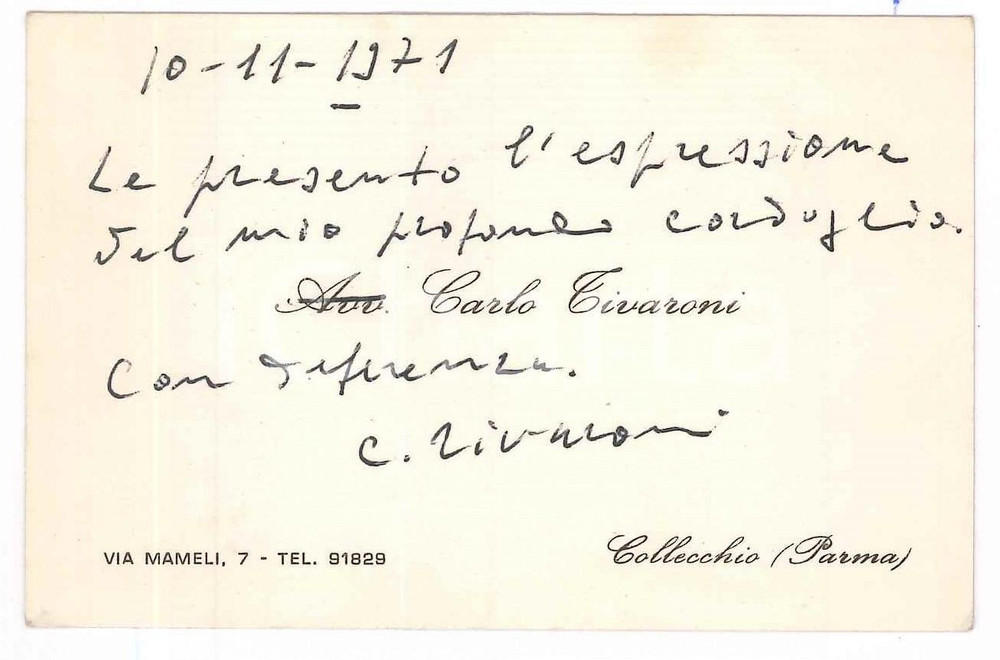 10-11-1971
Le presento l'espressione
del mio profondo cordoglio.
Avv. Carlo Tivaroni
Con deferenza.
C. Tivaroni
VIA MAMELI, 7 - TEL. 91829
Collecchio (Parma)